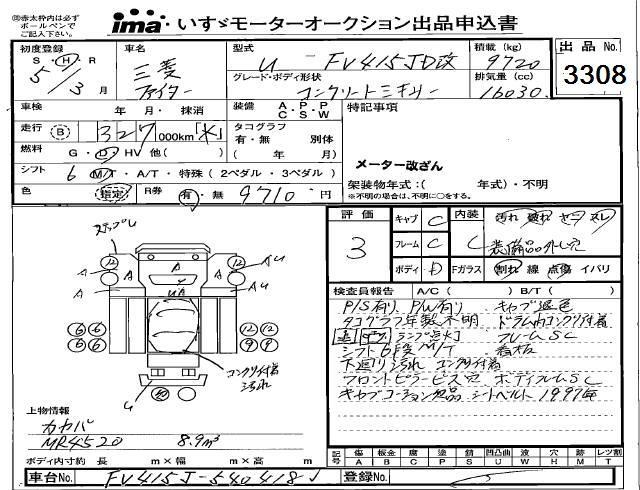 ◎赤太枠内は必ず
ボールペンで
ご記入下さい。
ima いすゞモーターオークション出品申込書
初度登録
S・H・R
5/3 月
車名
三菱
ファイター
型式
U - FV415JD改
グレード・ボディ形状
コンクリートミキサー
積載 (kg)
9720
排気量 (cc)
16030
出品 No.
3308
車検 年 月・抹消
装備 A・P・P
C・S・W
特記事項
走行 B 327,000km(米)
タコグラフ
有・無 別体
燃料 G・D・HV 他( )
( 年 月)
メーター改ざん
シフト 6 M/T・A/T・特殊(2ペダル・3ペダル)
架装物年式:( 年式)・不明
※不明の場合は、不明に○をする。
色 指定 R券 有・無 9710 円
評価
3
キャブ C
フレーム C
ボディ D
内装 C
汚れ 破れ コゲ スレ
装備品外し穴
Fガラス 割れ 線 点傷 イバリ
検査員報告 A/C( ) B/T( )
P/S有り P/W有り キャブ退色
タコグラフ年製不明 ドラム内コンクリ付着
ランプ点灯 フレームSC
シフト6段M/T 看板
下廻り汚れ コンクリ付着
フロントピラービス穴 ボディフレームSC
キャブコーション欠品 シートベルト1997年
ステップU
12 A A 12
A A
A AU
A AU
UA
6 6 12 12
6 6 9 9
コンクリ付着
汚れ
U
上物情報
カヤバ
MR4520 8.9m³
ボディ内寸約 長 m×幅 m×高 m
記号 傷 板金 腐 凹 錆 凹凸曲 波 穴 跡 レツ割
A B C P S U W H M T
車台No. FV415J-540418J
登録No.